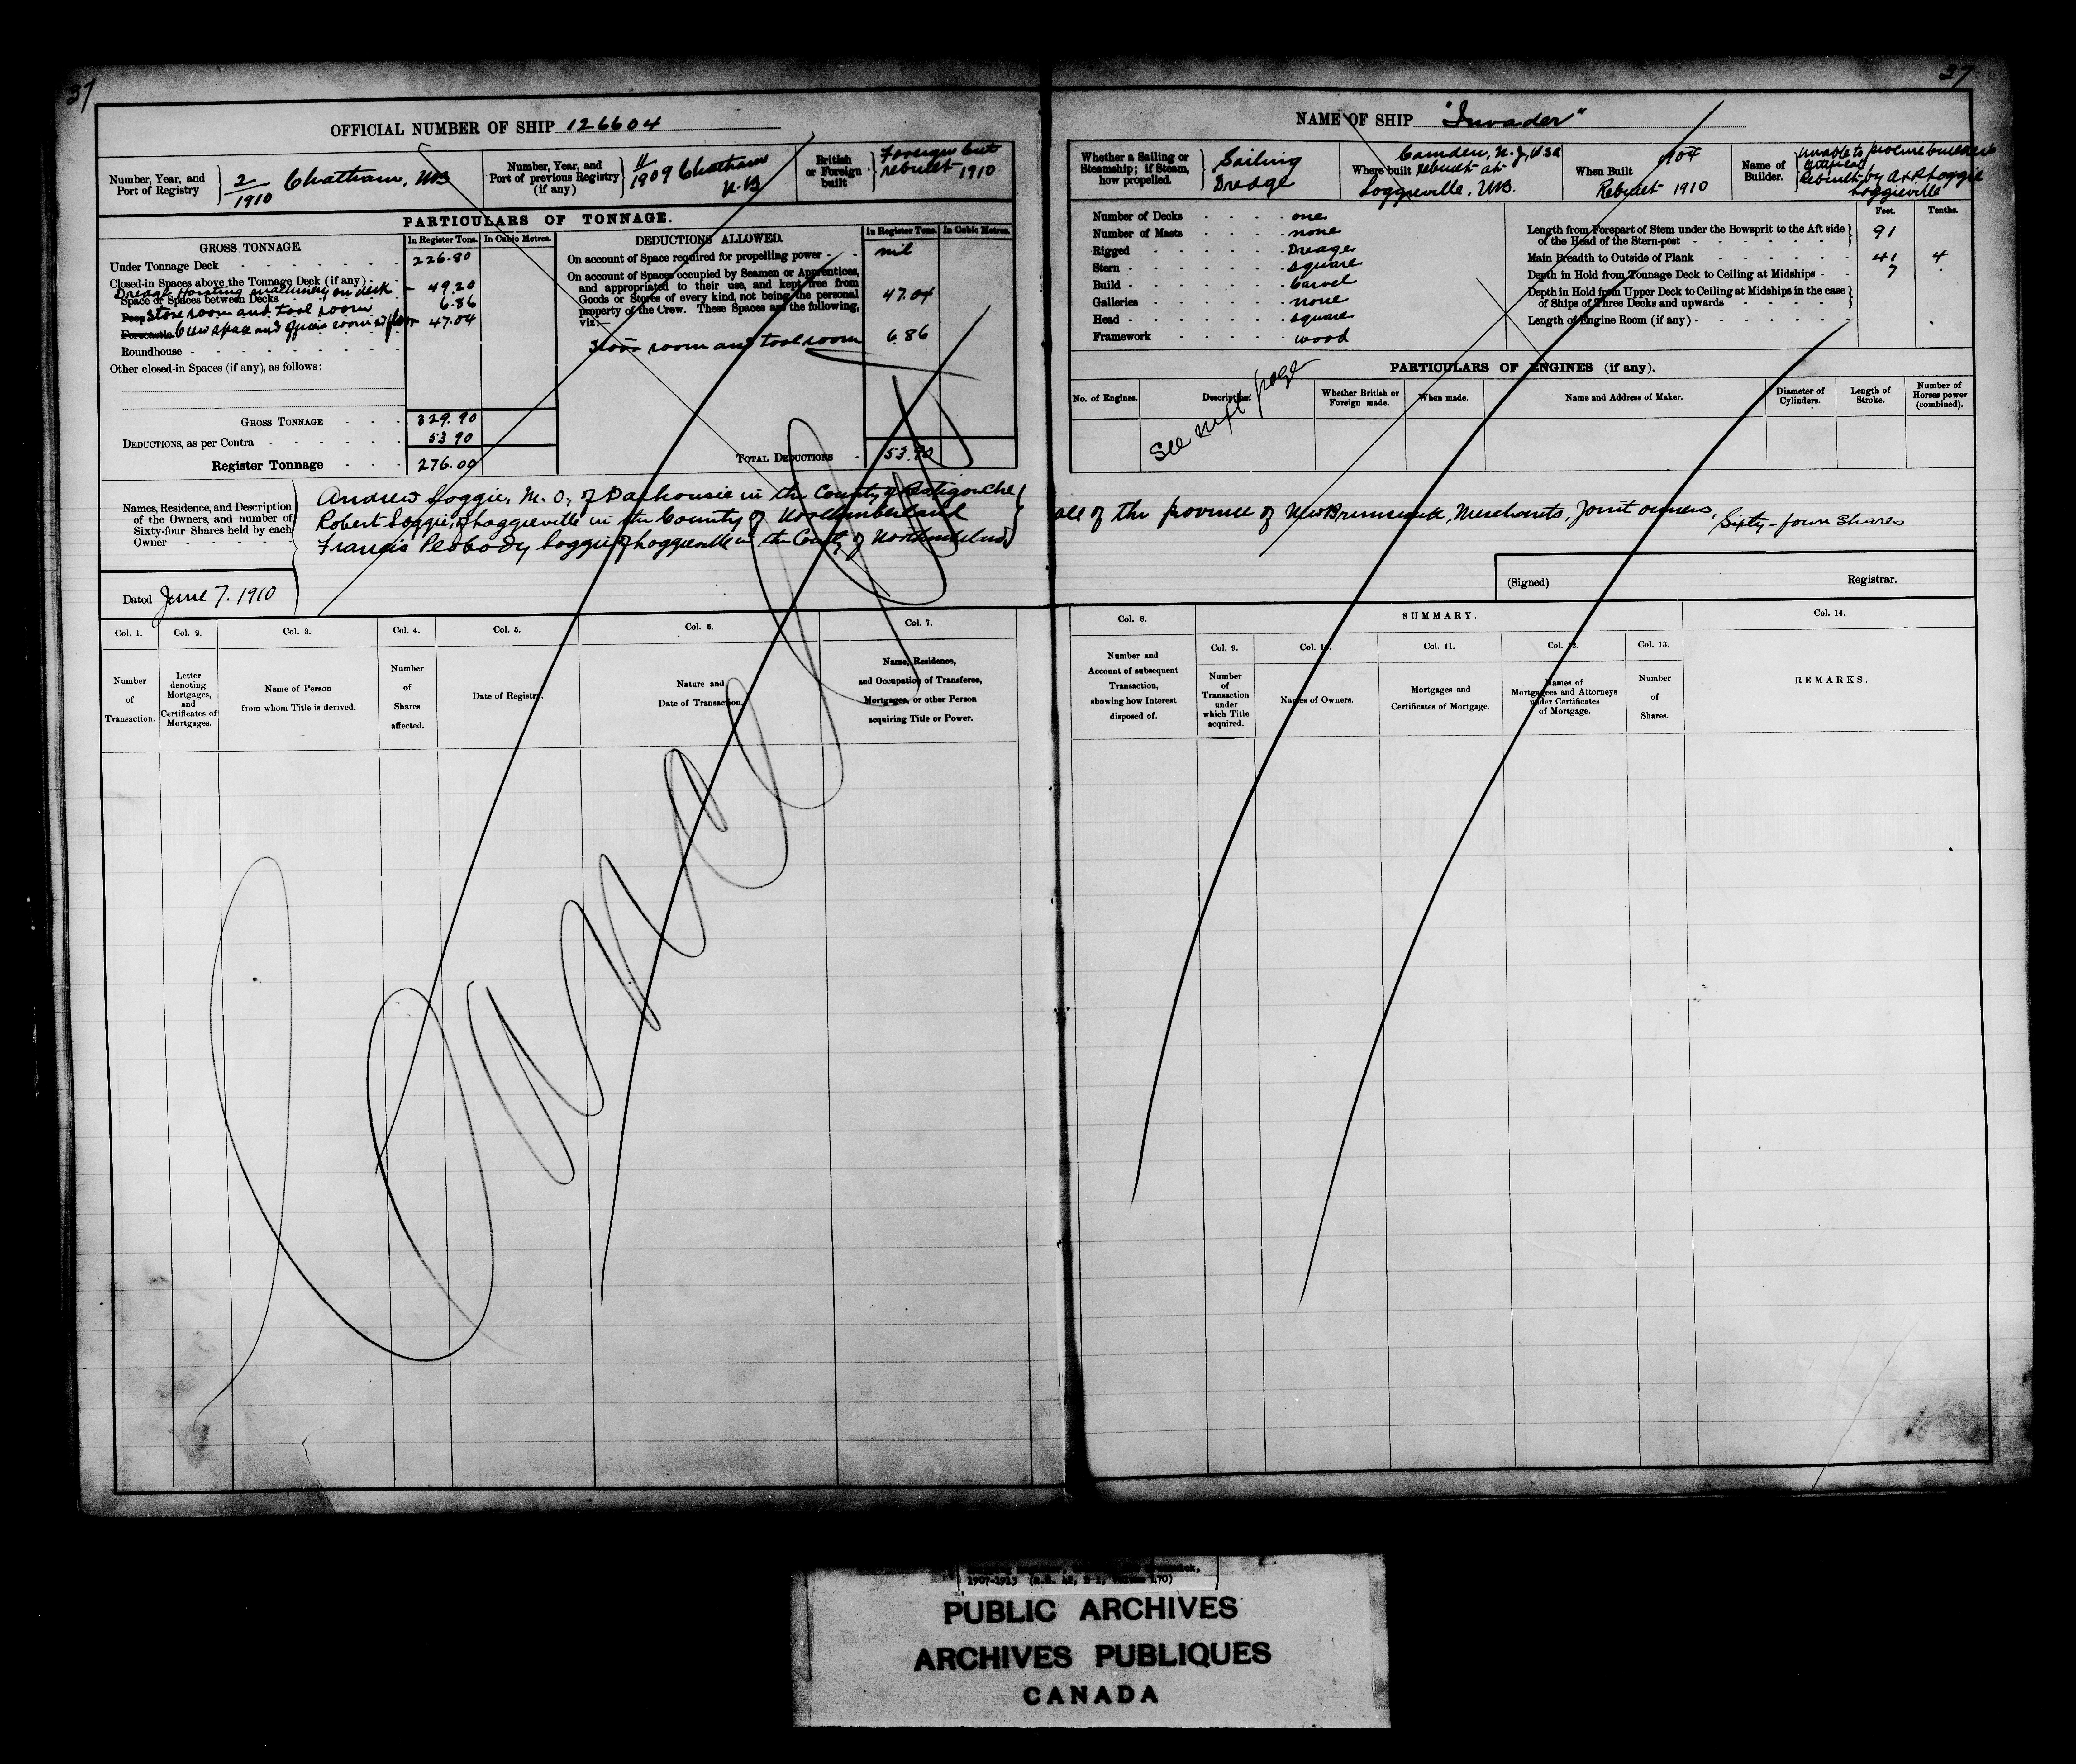 37
37
OFFICIAL NUMBER OF SHIP 126604
Number, Year, and
Port of Registry
2/1910 Chatham, NB
Number, Year, and
Port of previous Registry
(if any)
11/1909 Chatham
N.B
British
or Foreign
built
Foreign but
rebuilt 1910
PARTICULARS OF TONNAGE.
GROSS TONNAGE.
In Register Tons.
In Cubic Metres.
Under Tonnage Deck 226.80
Closed-in Spaces above the Tonnage Deck (if any)
Dredge Hoisting machinery on deck 49.20
Space or Spaces between Decks
Poop Store room and tool room 6.86
Forecastle Crew space and 47.04
Roundhouse
Other closed-in Spaces (if any), as follows:
GROSS TONNAGE 329.90
DEDUCTIONS, as per Contra 53 90
Register Tonnage 276.00
DEDUCTIONS ALLOWED.
In Register Tons.
In Cubic Metres.
On account of Space required for propelling power nil
On account of Spaces occupied by Seamen or Apprentices,
and appropriated to their use, and kept free from
Goods or Stores of every kind, not being the personal
property of the Crew. These Spaces are the following,
viz:—
47.04
Store room and tool room 6.86
TOTAL DEDUCTIONS 53.90
Names, Residence, and Description
of the Owners, and number of
Sixty-four Shares held by each
Owner
Andrew Loggie, M.O., of Dalhousie in the County of Restigouche
Robert Loggie, of Loggieville in the County of Northumberland
Francis Peabody Loggie of Loggieville in the County of Northumberland
Dated June 7. 1910
Col. 1.
Number
of
Transaction.
Col. 2.
Letter
denoting
Mortgages,
and
Certificates of
Mortgages.
Col. 3.
Name of Person
from whom Title is derived.
Col. 4.
Number
of
Shares
affected.
Col. 5.
Date of Registry.
Col. 6.
Nature and
Date of Transaction.
Col. 7.
Name, Residence,
and Occupation of Transferee,
Mortgages, or other Person
acquiring Title or Power.
Cancelled
NAME OF SHIP "Invader"
Whether a Sailing or
Steamship; if Steam,
how propelled.
Sailing
Dredge
Where built
Camden, N.J, USA
Rebuilt at
Loggieville. NB.
When Built
1904
Rebuilt 1910
Name of
Builder.
Unable to procure builders
certificate
Rebuilt by A & R Loggie
Loggieville
Number of Decks one
Number of Masts none
Rigged Dredge
Stern square
Build Carvel
Galleries none
Head square
Framework wood
Feet.
Tenths.
Length from Forepart of Stem under the Bowsprit to the Aft side
of the Head of the Stern-post 91
Main Breadth to Outside of Plank 41 4
Depth in Hold from Tonnage Deck to Ceiling at Midships 7
Depth in Hold from Upper Deck to Ceiling at Midships in the case
of Ships of Three Decks and upwards
Length of Engine Room (if any)
PARTICULARS OF ENGINES (if any).
No. of Engines.
Description.
Whether British or
Foreign made.
When made.
Name and Address of Maker.
Diameter of
Cylinders.
Length of
Stroke.
Number of
Horses power
(combined).
See next page
all of the province of New Brunswick, Merchants, Joint owners, Sixty-four Shares
(Signed) Registrar.
Col. 8.
Number and
Account of subsequent
Transaction,
showing how Interest
disposed of.
SUMMARY.
Col. 9.
Number
of
Transaction
under
which Title
acquired.
Col. 10.
Names of Owners.
Col. 11.
Mortgages and
Certificates of Mortgage.
Col. 12.
Names of
Mortgagees and Attorneys
under Certificates
of Mortgage.
Col. 13.
Number
of
Shares.
Col. 14.
REMARKS.
1907-1913 (R.G. 42, B 1, Volume 470)
PUBLIC ARCHIVES
ARCHIVES PUBLIQUES
CANADA